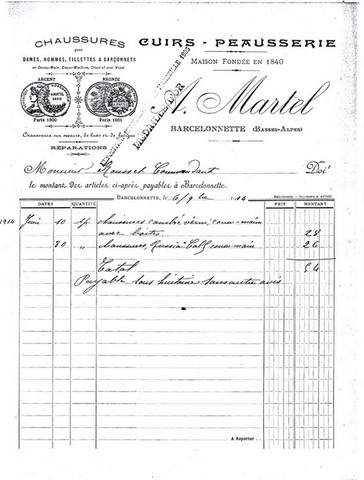 CHAUSSURES
pour
DAMES, HOMMES, FILLETTES & GARÇONNETS
ARGENT
BRONZE
Paris 1900
Paris 1901
Chaussures sur mesure, de luxe et de fatigue
RÉPARATIONS
CUIRS - PEAUSSERIE
MAISON FONDÉE EN 1840
MÉDAILLE D'OR
A. Martel
BARCELONNETTE (BASSES-ALPES)
Monsieur Rousset Commandant Doit
le montant des articles ci-après payables à Barcelonnette.
BARCELONNETTE, le 6/9bre 14
DATES QUANTITÉ PRIX MONTANT
1914 Juin 10 1p. chaussures cambré verni cousu-main
avec boîtes 28
30 " Chaussures Russia Calf cousu-main 26
Total 54
Payable sous huitaine sans autre avis
A Reporter